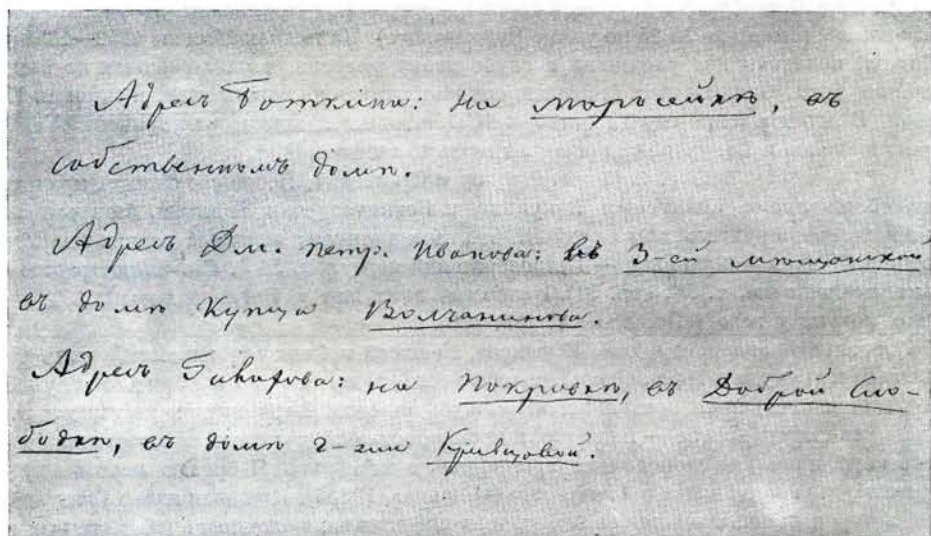 Адресъ Боткина: на Маросейкѣ, въ
собственномъ домѣ.
Адресъ Дм. Петр. Иванова: въ 3-ей Мѣщанской
въ домѣ Купца Волчанинова.
Адресъ Захарова: на Покровкѣ, въ Доброй Сло-
бодкѣ, въ домѣ г-жи Кривцовой.